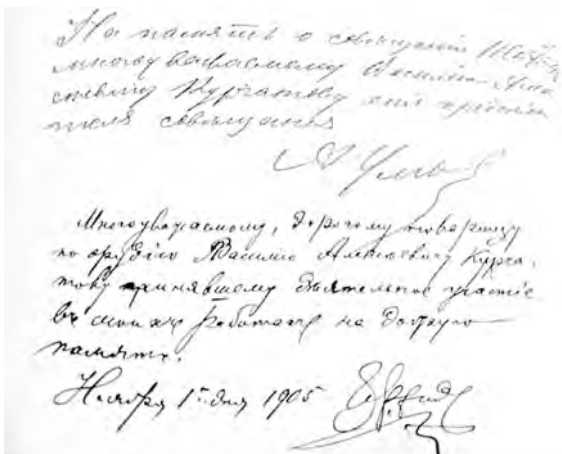 На память о совещаніи
многоуважаемому Василію Алек
сеевичу Курчатову отъ
теля совещанія
Многоуважаемому, дорогому товарищу
по орудію Василію Алексѣевичу Курча-
тову принявшему дѣятельное участіе
въ моихъ работахъ на добрую
память.
Ноября 1го дня 1905